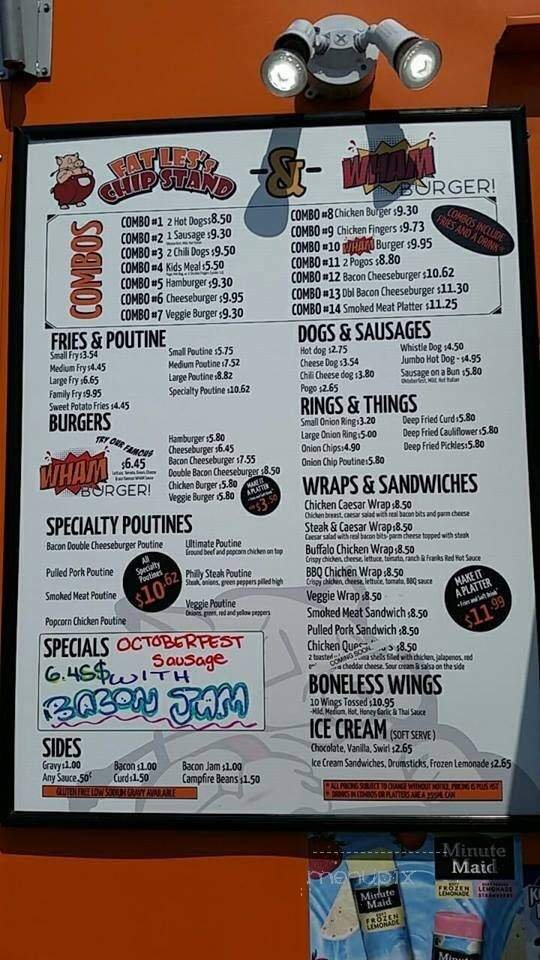 FAT LES'S
CHIP STAND
-&-
WHAM
BURGER!
COMBOS
COMBO #1 2 Hot Dogs $8.50
COMBO #2 1 Sausage $9.30
COMBO #3 2 Chili Dogs $9.50
COMBO #4 Kids Meal $5.50
COMBO #5 Hamburger $9.30
COMBO #6 Cheeseburger $9.95
COMBO #7 Veggie Burger $9.30
COMBO #8 Chicken Burger $9.30
COMBO #9 Chicken Fingers $9.73
COMBO #10 WHAM Burger $9.95
COMBO #11 2 Pogos $8.80
COMBO #12 Bacon Cheeseburger $10.62
COMBO #13 Dbl Bacon Cheeseburger $11.30
COMBO #14 Smoked Meat Platter $11.25
COMBOS INCLUDE
FRIES AND A DRINK
FRIES & POUTINE
Small Fry $3.54
Medium Fry $4.45
Large Fry $6.65
Family Fry $9.95
Sweet Potato Fries $4.45
Small Poutine $5.75
Medium Poutine $7.52
Large Poutine $8.82
Specialty Poutine $10.62
BURGERS
TRY OUR FAMOUS
WHAM
BURGER!
$6.45
Hamburger $5.80
Cheeseburger $6.45
Bacon Cheeseburger $7.55
Double Bacon Cheeseburger $8.50
Chicken Burger $5.80
Veggie Burger $5.80
MAKE IT
A PLATTER
$3.50
SPECIALTY POUTINES
Bacon Double Cheeseburger Poutine
Pulled Pork Poutine
Smoked Meat Poutine
Popcorn Chicken Poutine
All
Specialty
Poutines
$10.62
Ultimate Poutine
Ground beef and popcorn chicken on top
Philly Steak Poutine
Steak, onions, green peppers pilled high
Veggie Poutine
Onions, green, red and yellow peppers
SPECIALS OCTOBERFEST
Sausage
6.45$ WITH
BACON JAM
SIDES
Gravy $1.00
Any Sauce .50¢
Bacon $1.00
Curd $1.50
Bacon Jam $1.00
Campfire Beans $1.50
GLUTEN FREE LOW SODIUM GRAVY AVAILABLE
DOGS & SAUSAGES
Hot dog $2.75
Cheese Dog $3.54
Chili Cheese dog $3.80
Pogo $2.65
Whistle Dog $4.50
Jumbo Hot Dog - $4.95
Sausage on a Bun $5.80
Oktoberfest, Mild, Hot Italian
RINGS & THINGS
Small Onion Ring $3.20
Large Onion Ring $5.00
Onion Chips $4.90
Onion Chip Poutine $5.80
Deep Fried Curd $5.80
Deep Fried Cauliflower $5.80
Deep Fried Pickles $5.80
WRAPS & SANDWICHES
Chicken Caesar Wrap $8.50
Chicken breast, caesar salad with real bacon bits and parm cheese
Steak & Caesar Wrap $8.50
Caesar salad with real bacon bits- parm cheese topped with steak
Buffalo Chicken Wrap $8.50
Crispy chicken, cheese, lettuce, tomato, ranch & Franks Red Hot Sauce
BBQ Chicken Wrap $8.50
Crispy chicken, cheese, lettuce, tomato, BBQ sauce
Veggie Wrap $8.50
Smoked Meat Sandwich $8.50
Pulled Pork Sandwich $8.50
Chicken Ques $8.50
COMING SOON
2 toasted shells filled with chicken, jalapenos, red
cheddar cheese. Sour cream & salsa on the side
MAKE IT
A PLATTER
+ Fries and Soft Drink
$11.99
BONELESS WINGS
10 Wings Tossed $10.95
-Mild, Medium, Hot, Honey Garlic & Thai Sauce
ICE CREAM (SOFT SERVE)
Chocolate, Vanilla, Swirl $2.65
Ice Cream Sandwiches, Drumsticks, Frozen Lemonade $2.65
* ALL PRICING SUBJECT TO CHANGE WITHOUT NOTICE, PRICING IS PLUS HST
* DRINKS IN COMBOS OR PLATTERS ARE A 355ML CAN
menupix
Minute
Maid
FROZEN
LEMONADE
LEMONADE
Minute
Maid
FROZEN
LEMONADE